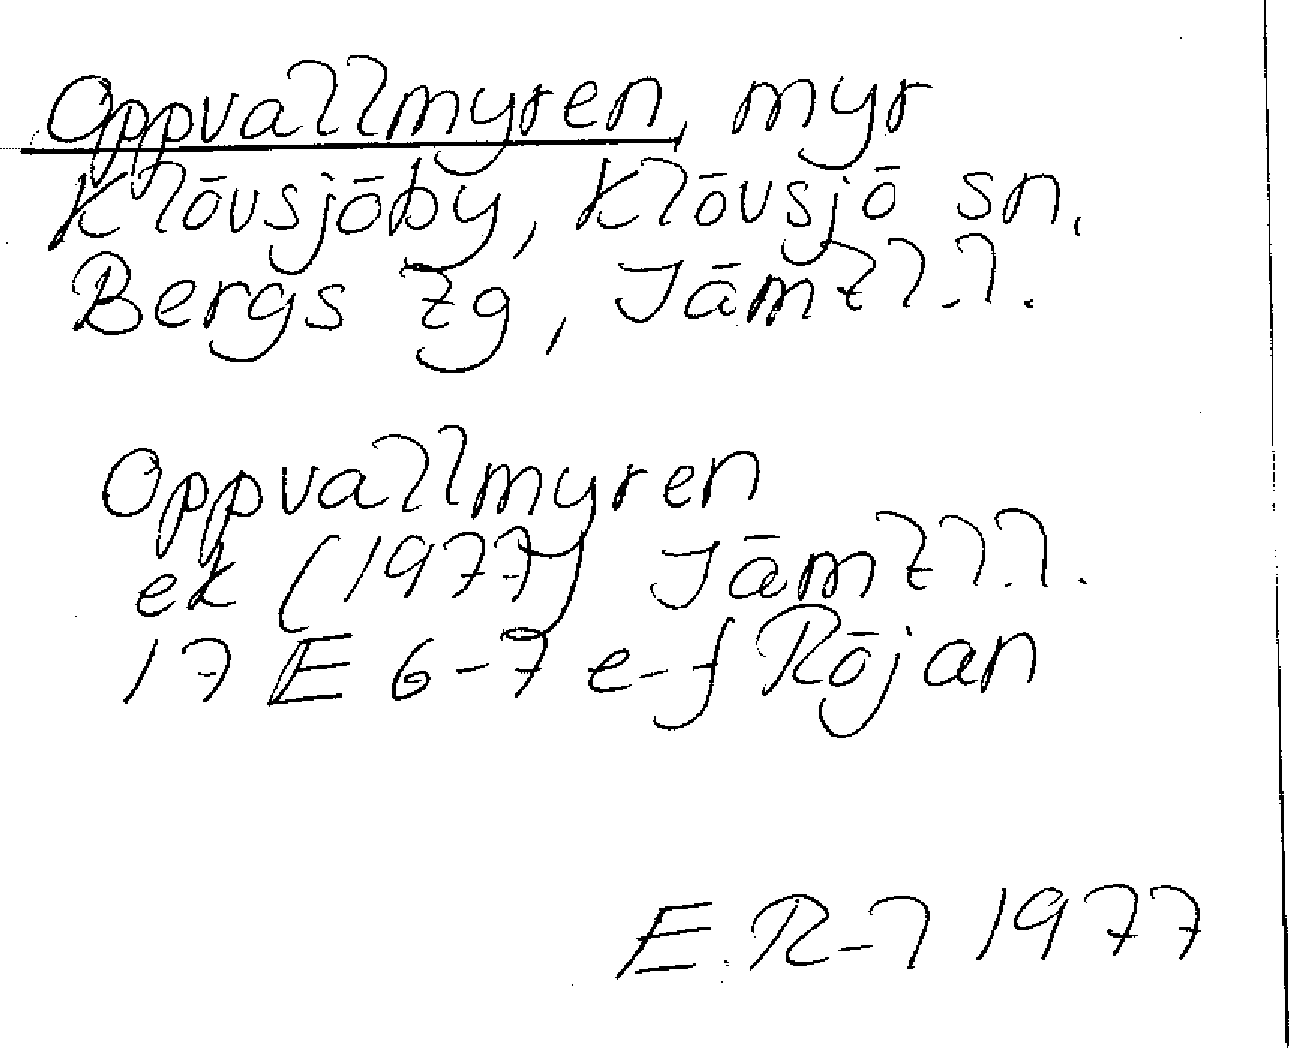 Oppvallmyren, myr
Klövsjöby, Klövsjö sn,
Bergs tg, Jämtl.
Oppvallmyren
ek (1977) Jämtl.
17 E 6-7 e-f Röjan
1977